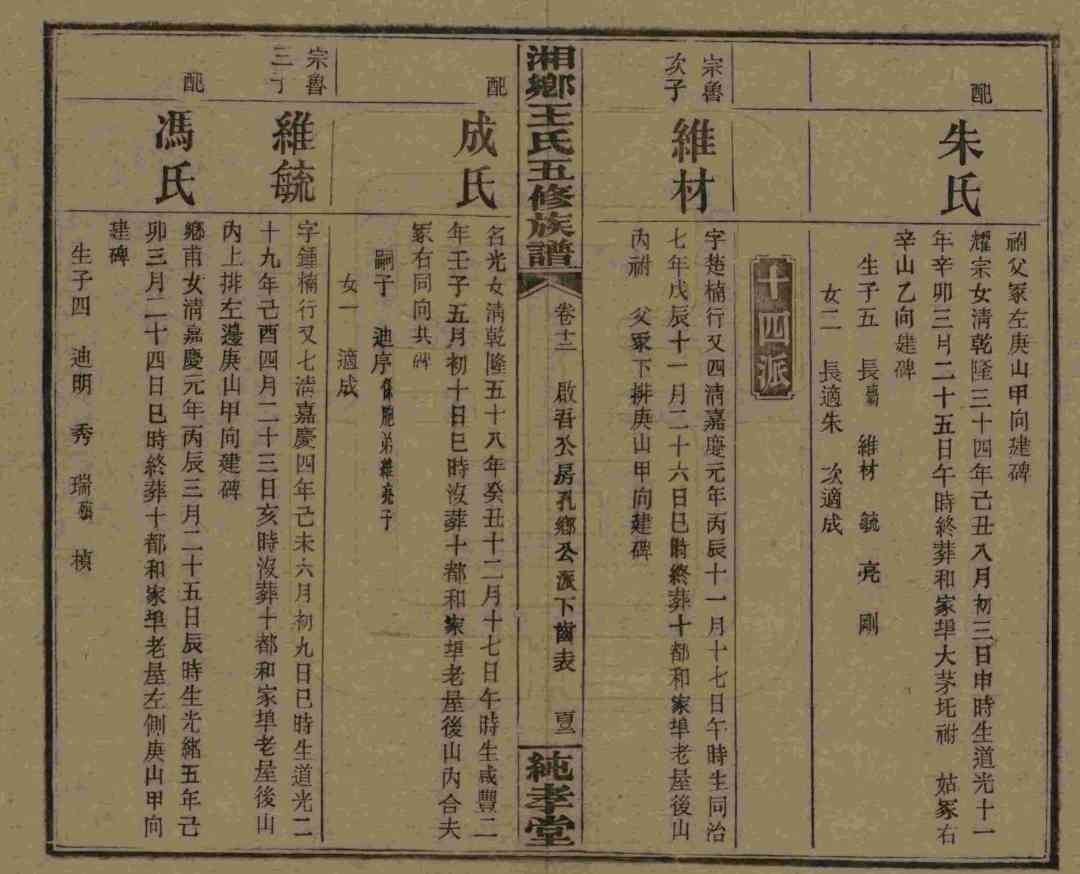 祔父冢左庚山甲向建碑
配
朱氏
耀宗女淸乾隆三十四年己丑八月初三日申時生道光十一
年辛卯三月二十五日午時終葬和家埠大茅坵祔 姑冢右
辛山乙向建碑
生子五 長 維材 毓 亮 剛
女二 長適朱 次適成
十四派
宗魯
次子
維材
字楚楠行又四淸嘉慶元年丙辰十一月十七日午時生同治
七年戊辰十一月二十六日巳時終葬十都和家埠老屋後山
內祔 父冢下排庚山甲向建碑
湘鄉王氏五修族譜
卷十二 啟吾公房孔鄉公派下齒表
純孝堂
配
成氏
名光女淸乾隆五十八年癸丑十二月十七日午時生咸豐二
年壬子五月初十日巳時沒葬十都和家埠老屋後山內合夫
冢右同向共碑
嗣子 迪序係胞弟維亮子
女一 適成
宗魯
三子
維毓
字鍾楠行又七淸嘉慶四年己未六月初九日巳時生道光二
十九年己酉四月二十三日亥時沒葬十都和家埠老屋後山
內上排左邊庚山甲向建碑
配
馮氏
鄉甫女淸嘉慶元年丙辰三月二十五日辰時生光緒五年己
卯三月二十四日巳時終葬十都和家埠老屋左側庚山甲向
建碑
生子四 迪明 秀 瑞 楨